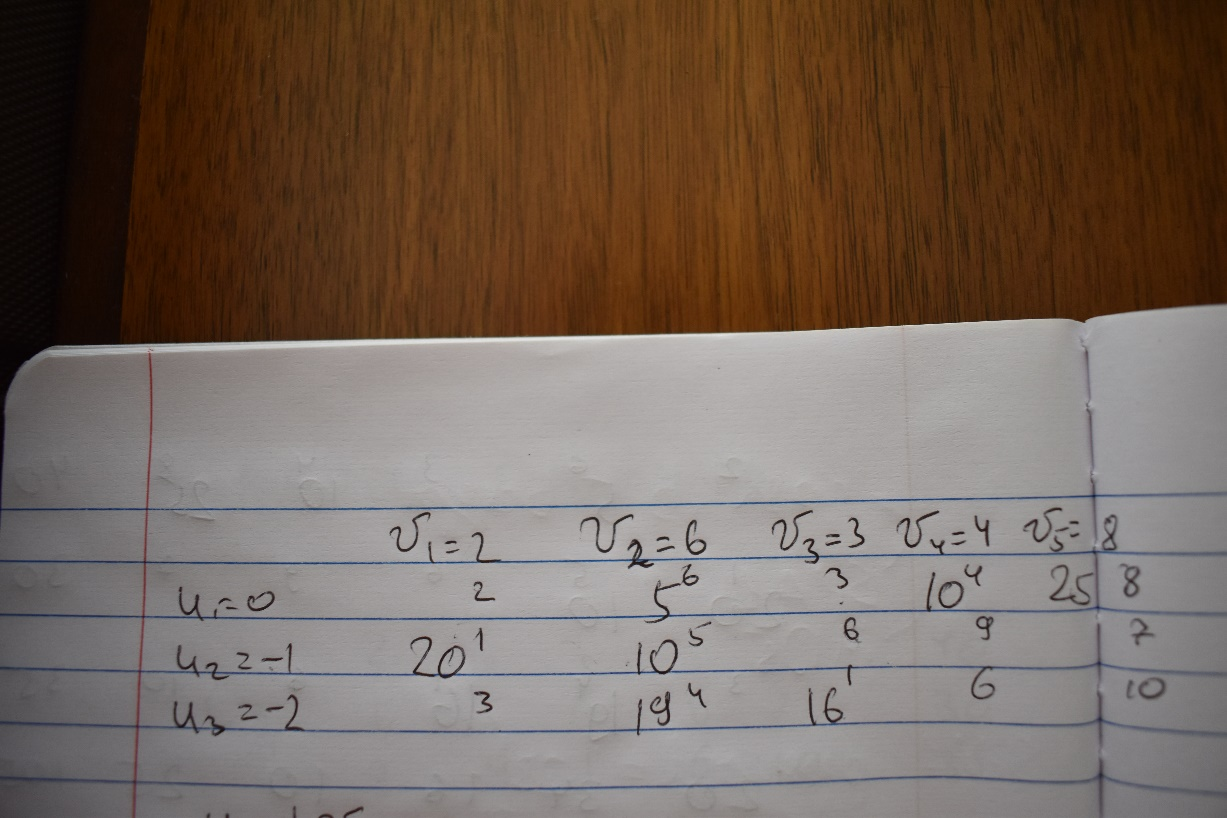 v₁=2 v₂=6 v₃=3 v₄=4 v₅=8
u₁=0 2 5⁶ 3 10⁴ 25 8
u₂=-1 20¹ 10⁵ 6 9 7
u₃=-2 3 19⁴ 16¹ 6 10